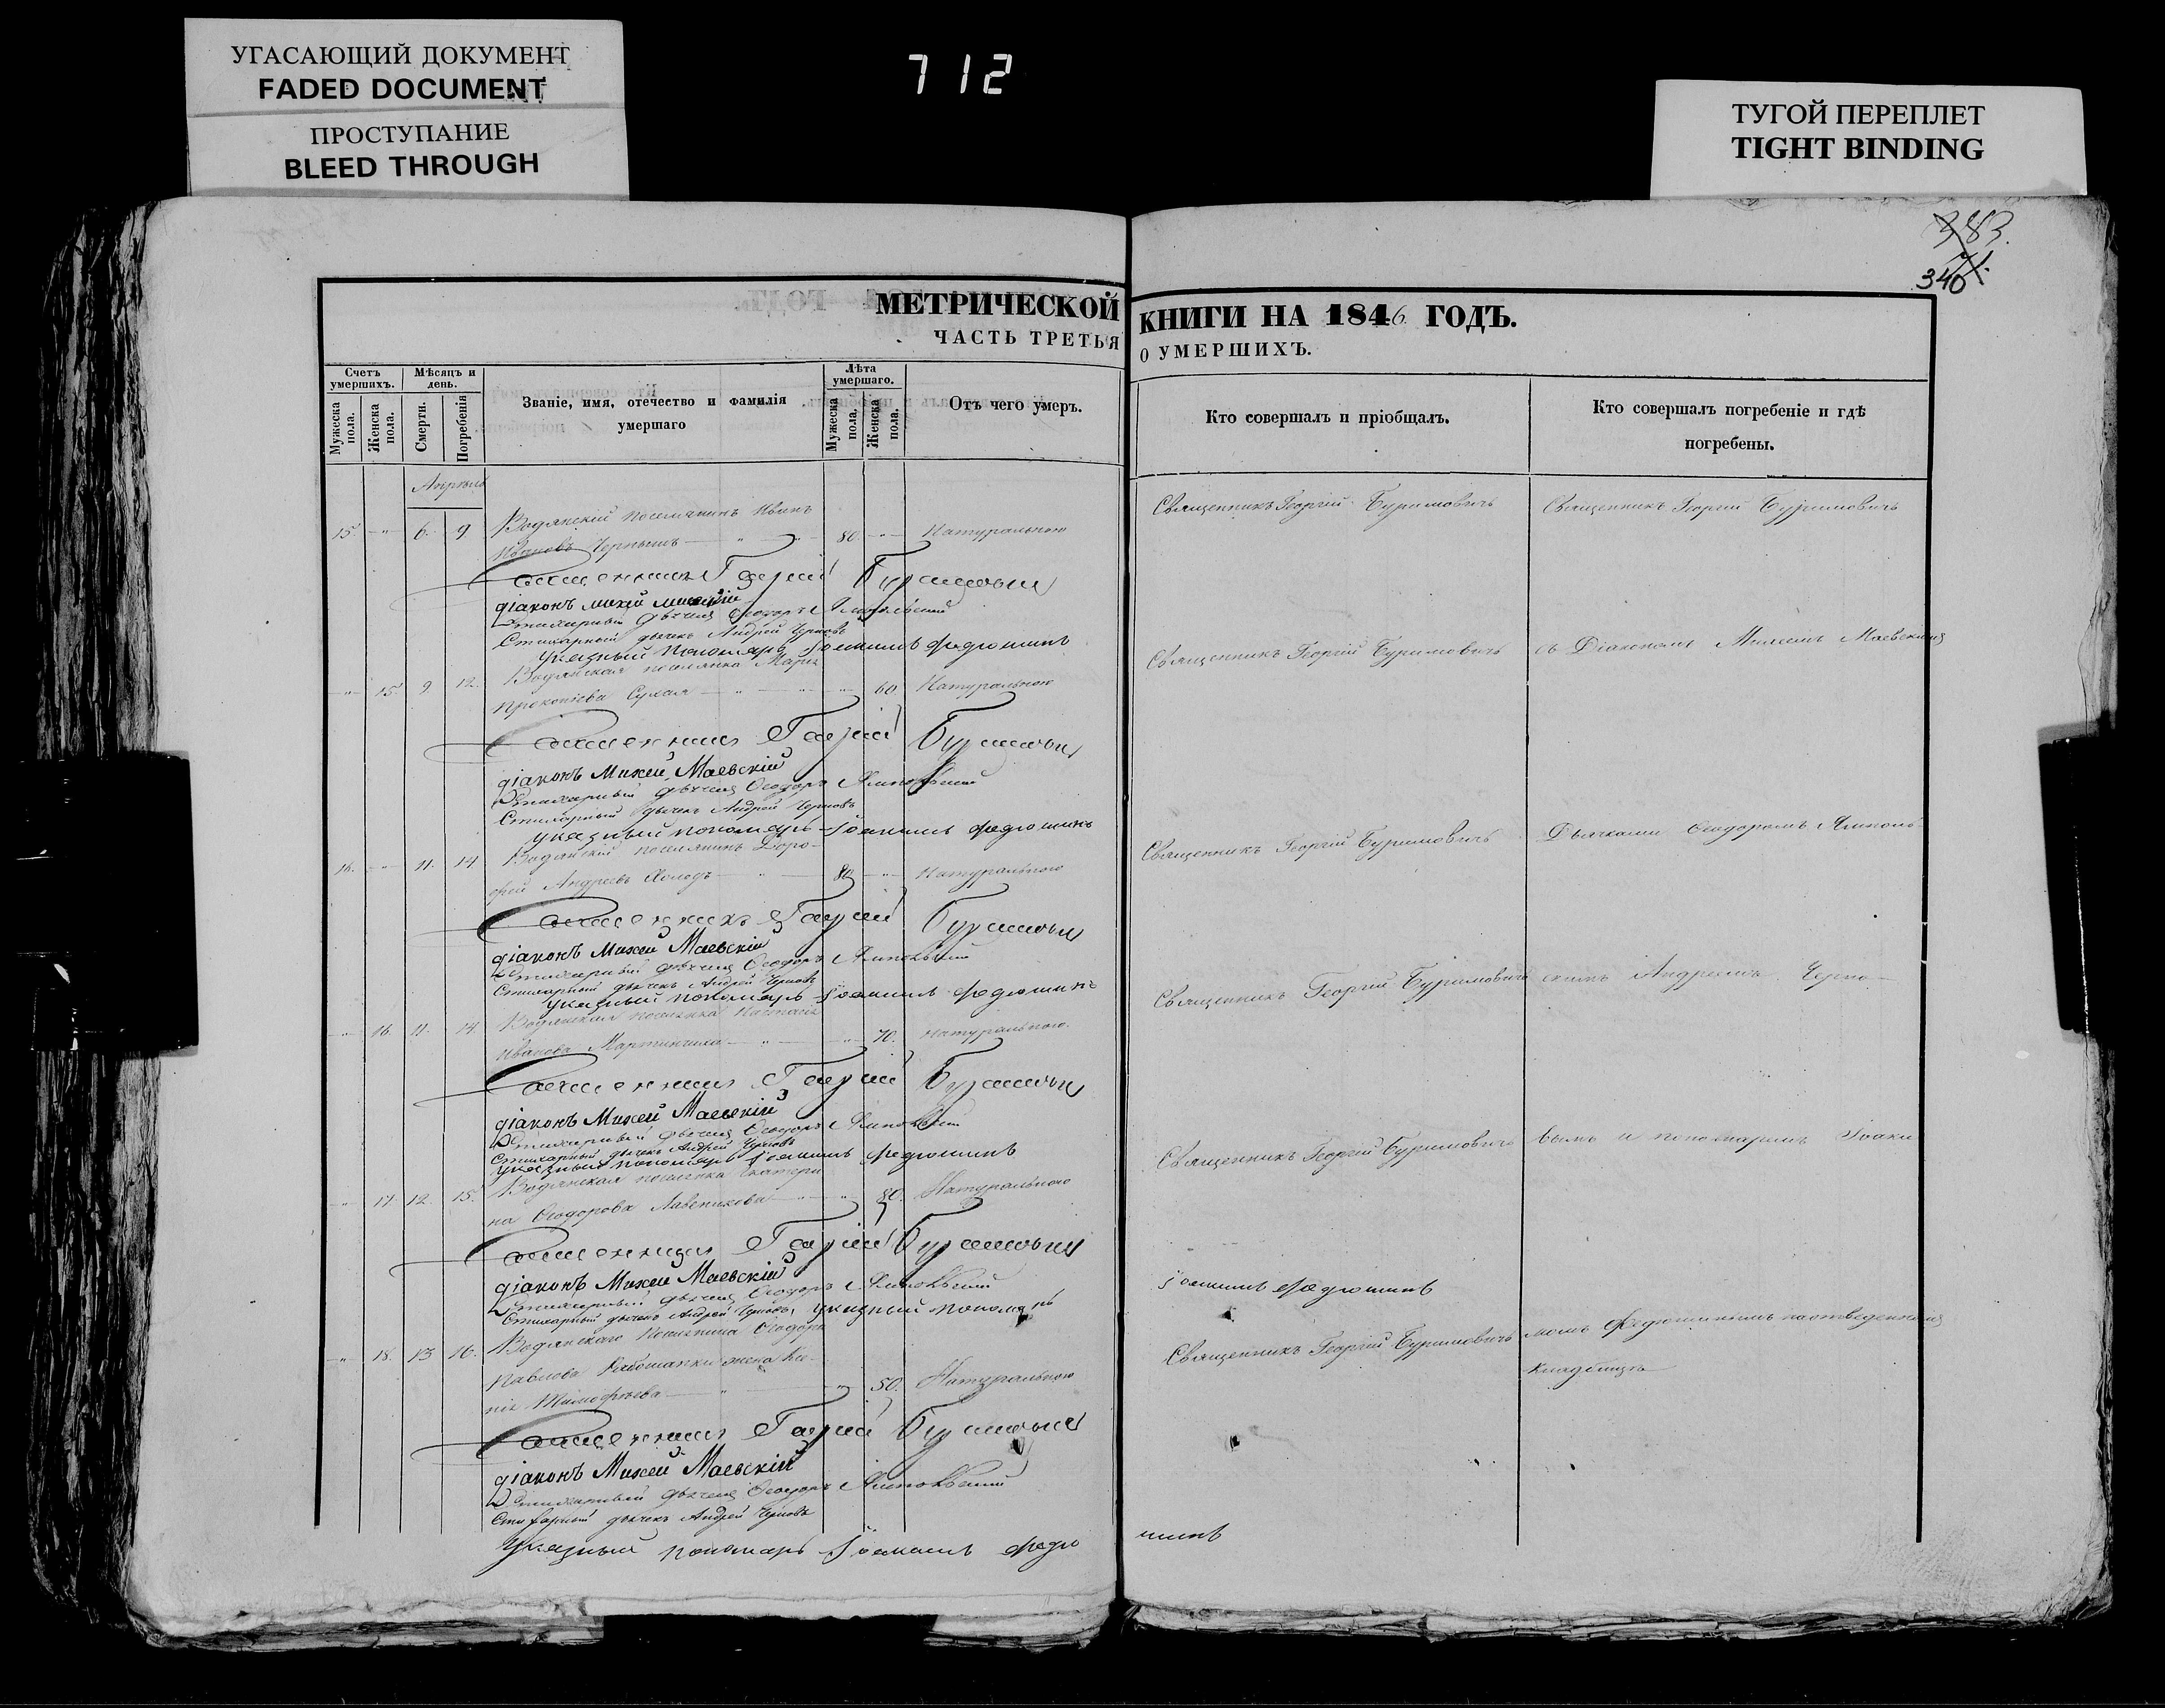 УГАСАЮЩИЙ ДОКУМЕНТ
FADED DOCUMENT
ПРОСТУПАНИЕ
BLEED THROUGH
712
ТУГОЙ ПЕРЕПЛЕТ
TIGHT BINDING
383.
340
МЕТРИЧЕСКОЙ КНИГИ НА 1846 ГОДЪ.
ЧАСТЬ ТРЕТЬЯ О УМЕРШИХЪ.
Счетъ умершихъ.
Мужеска пола.
Женска пола.
Мѣсяцъ и день.
Смерти.
Погребенія
Званіе, имя, отечество и фамилія
умершаго
Лѣта умершаго.
Мужеска пола.
Женска пола.
Отъ чего умеръ.
Кто совершалъ и пріобщалъ.
Кто совершалъ погребеніе и гдѣ
погребены.
Апрѣль
15. 6. 9 Водянскій поселянинъ Иванъ
Ивановъ Чернышъ 80. Натуральною
Священникъ Георгій Буримовичъ
Священникъ Георгій Буримовичъ
Священникъ Георгій Буримовичъ
діаконъ Михей
Стихарный дьячекъ Ѳеодоръ Ямпольскій
Стихарный дьячекъ Андрей Черновъ
указный пономарь Іоакимъ Федюшинъ
15. 9 12. Водянская поселянка Марія
Прокопіева Сухая 60. Натуральною
Священникъ Георгій Буримовичъ
съ Діакономъ Михеемъ Маевскимъ
Священникъ Георгій Буримовичъ
діаконъ Михей Маевскій
Стихарный дьячекъ Ѳеодоръ Ямпольскій
Стихарный дьячекъ Андрей Черновъ
указный пономарь Іоакимъ Федюшинъ
16. 11. 14. Водянскій поселянинъ Доро-
фей Андреевъ Холодъ 80. Натуральною
Священникъ Георгій Буримовичъ
Дьячками Ѳеодоромъ Ямполь-
Священникъ Георгій Буримовичъ
діаконъ Михей Маевскій
Стихарный дьячекъ Ѳеодоръ Ямпольскій
Стихарный дьячекъ Андрей Черновъ
указный пономарь Іоакимъ Федюшинъ
16. 11. 14. Водянская поселянка
Иванова 70. натуральною.
Священникъ Георгій Буримовичъ
скимъ Андреемъ Черно-
Священникъ Георгій Буримовичъ
діаконъ Михей Маевскій
Стихарный дьячекъ Ѳеодоръ Ямпольскій
Стихарный дьячекъ Андрей Черновъ
указный пономарь Іоакимъ Федюшинъ
17 12. 15. Водянская поселянка Екатери
на Ѳеодорова 80. Натуральною
Священникъ Георгій Буримовичъ
вымъ и пономаремъ Іоаки
Священникъ Георгій Буримовичъ
діаконъ Михей Маевскій
Стихарный дьячекъ Ѳеодоръ Ямпольскій
Стихарный дьячекъ Андрей Черновъ. указный пономарь
Іоакимъ Федюшинъ
18. 13 16. Водянскаго поселянина Ѳеодора
Павлова жена
Тимофѣева 50. Натуральною
Священникъ Георгій Буримовичъ
момъ Федюшинымъ на отведенномъ
кладбищѣ
Священникъ Георгій Буримовичъ
діаконъ Михей Маевскій
Стихарный дьячекъ Ѳеодоръ Ямпольскій
Стихарный дьячекъ Андрей Черновъ
Указный пономарь Іоакимъ Федю
шинъ